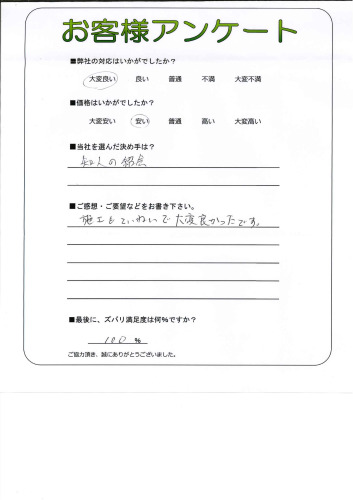 お客様アンケート
■弊社の対応はいかがでしたか？
大変良い 良い 普通 不満 大変不満
■価格はいかがでしたか？
大変安い 安い 普通 高い 大変高い
■当社を選んだ決め手は？
知人の紹介
■ご感想・ご要望などをお書き下さい。
施工もていねいで大変良かったです。
■最後に、ズバリ満足度は何％ですか？
100 %
ご協力頂き、誠にありがとうございました。